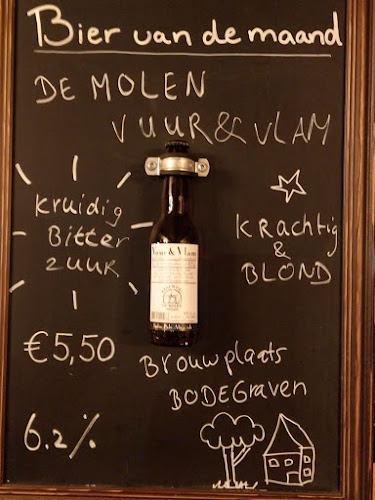 Bier van de maand
DE MOLEN
VUUR & VLAM
Kruidig
Bitter
ZUUR
KRachtig
&
BLOND
Vuur & Vlam
€5,50
BROUWplaats
BODEGRAVEN
6.2%